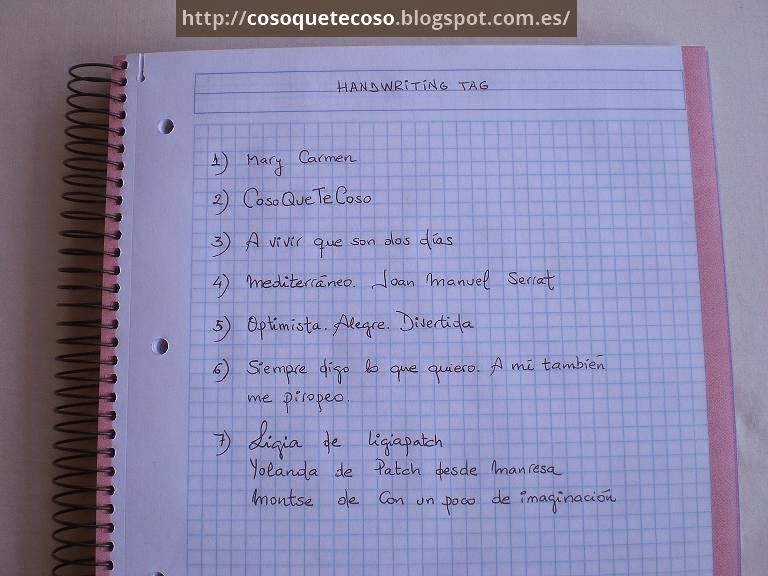 http://cosoquetecoso.blogspot.com.es/
HANDWRITING TAG
1) Mary Carmen
2) CosoQueTeCoso
3) A vivir que son dos días
4) Mediterráneo. Joan Manuel Serrat
5) Optimista. Alegre. Divertida
6) Siempre digo lo que quiero. A mí también
me piropeo.
7) Ligia de ligiapatch
Yolanda de Patch desde Manresa
Montse de Con un poco de imaginación